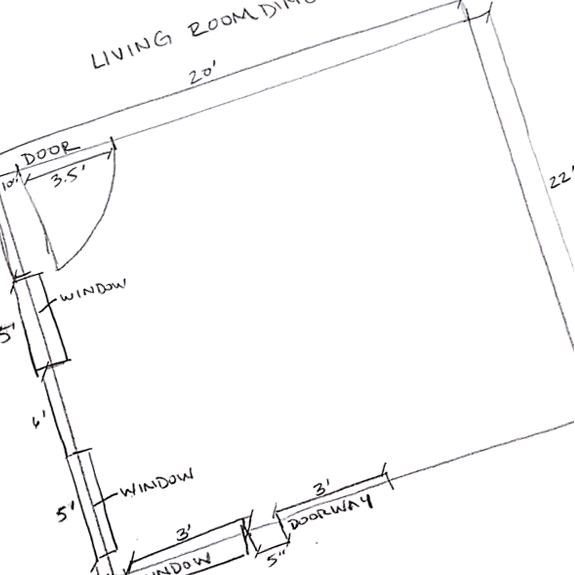 LIVING ROOM
20'
DOOR
10"
3.5'
22'
WINDOW
5'
WINDOW
5'
3'
3'
DOORWAY
5"